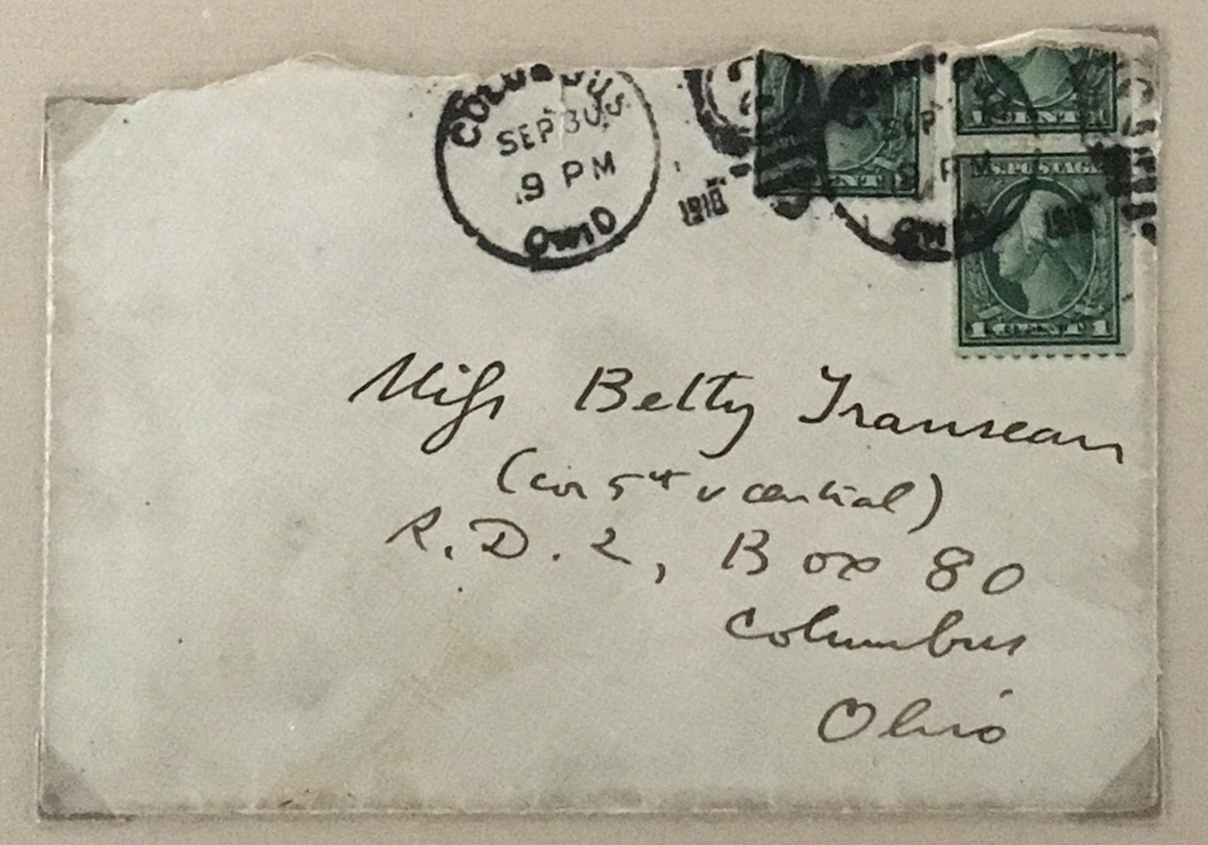 COLUMBUS
SEP 30
9 PM
OHIO
1918
CENT
1 CENT 1
U.S. POSTAGE
1 CENT 1
SEP
9 PM
Miss Betty Transeau
(cor 5th & central)
R.D. 2, Box 80
Columbus
Ohio